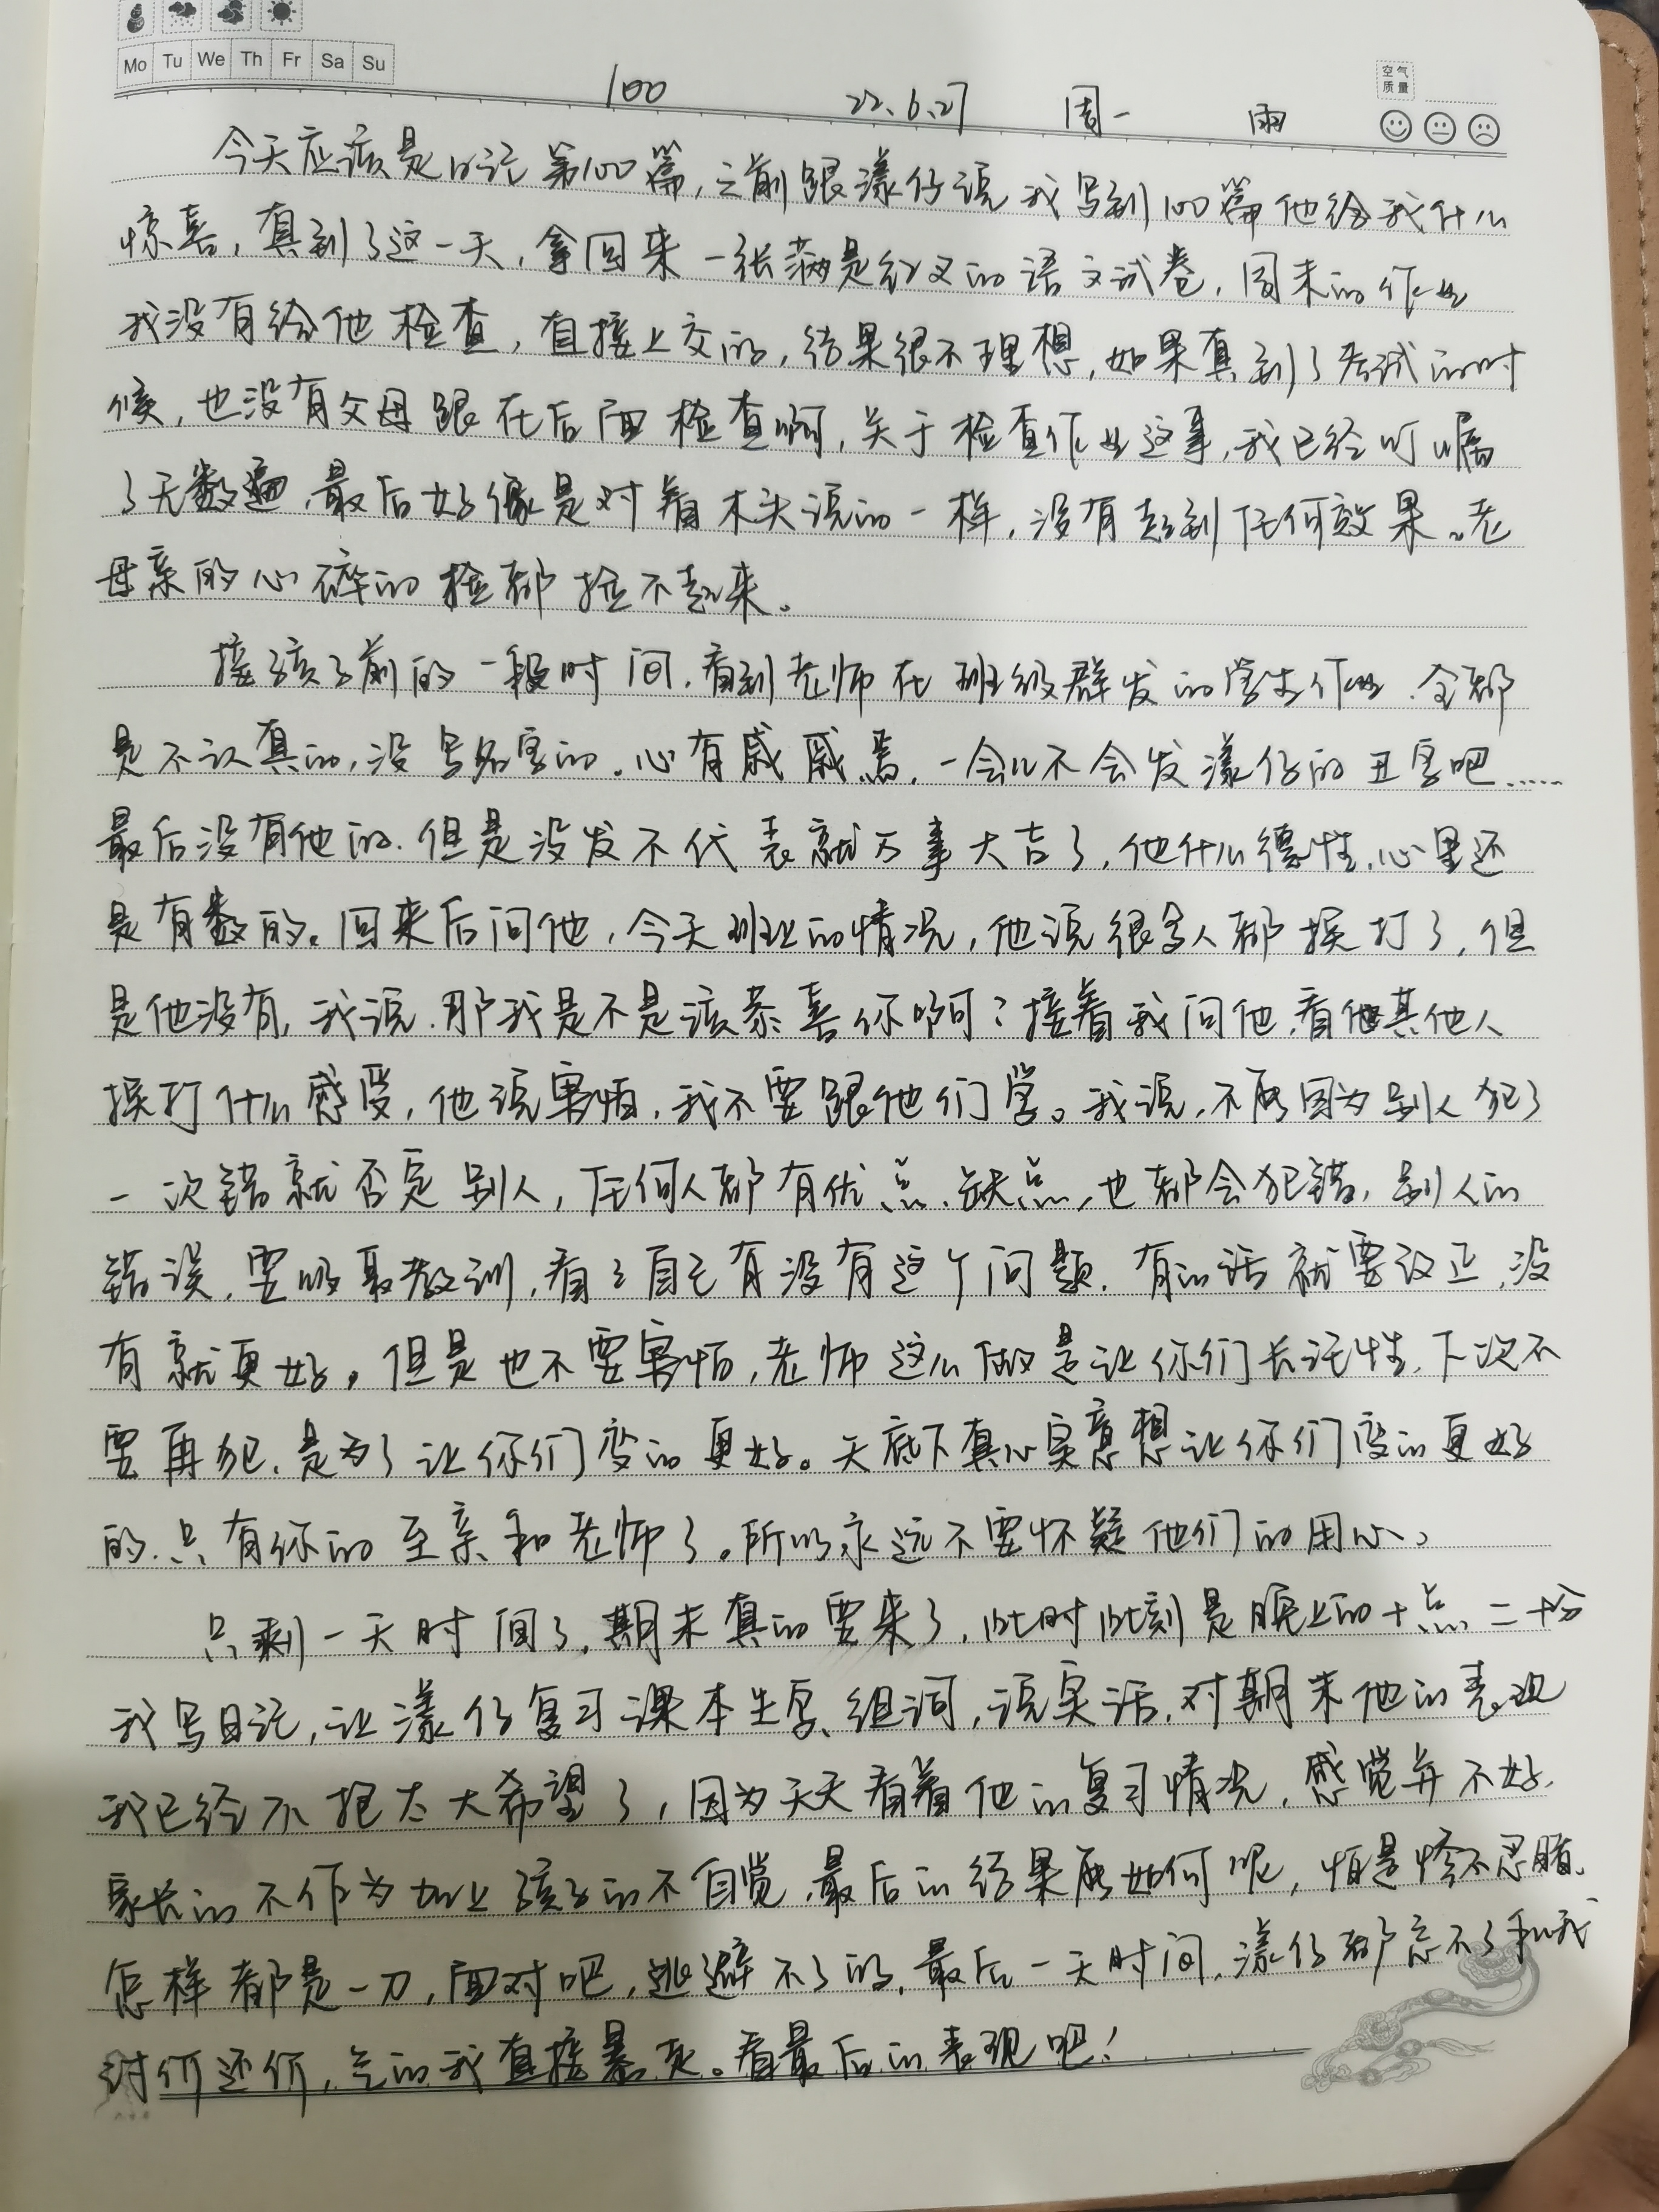 Mo Tu We Th Fr Sa Su
空气
质量
100 22.6.27 周一 雨
今天应该是日记第100篇,之前跟漾仔说我写到100篇他给我什么
惊喜,真到了这一天,拿回来一张满是红叉的语文试卷,周末的作业
我没有给他检查,直接上交的,结果很不理想,如果真到了考试的时
候,也没有父母跟在后面检查啊,关于检查作业这事,我已经叮嘱
了无数遍,最后好像是对着木头说的一样,没有起到任何效果。老
母亲的心碎的捡都捡不起来。
接孩子前的一段时间,看到老师在班级群发的学生作业,全都
是不认真的,没写名字的。心有戚戚焉,一会儿不会发漾仔的丑字吧……
最后没有他的,但是没发不代表就万事大吉了,他什么德性,心里还
是有数的。回来后问他,今天班上的情况,他说很多人都挨打了,但
是他没有,我说,那我是不是该恭喜你啊?接着我问他,看他其他人
挨打什么感受,他说害怕,我不要跟他们学。我说,不能因为别人犯了
一次错就否定别人,任何人都有优点、缺点,也都会犯错,别人的
错误,要吸取教训,看看自己有没有这个问题,有的话就要改正,没
有就更好。但是也不要害怕,老师这么做是让你们长记性,下次不
要再犯,是为了让你们变的更好。天底下真心实意想让你们变的更好
的,只有你的至亲和老师了。所以永远不要怀疑他们的用心。
只剩一天时间了,期末真的要来了,此时此刻是晚上的十点二十分
我写日记,让漾仔复习课本生字、组词,说实话,对期末他的表现
我已经不抱太大希望了,因为天天看着他的复习情况,感觉并不好,
家长的不作为加上孩子的不自觉,最后的结果能如何呢,怕是惨不忍睹。
怎样都是一刀,面对吧,逃避不了的,最后一天时间,漾仔都忘不了和我
讨价还价,气的我直接暴走。看最后的表现吧!